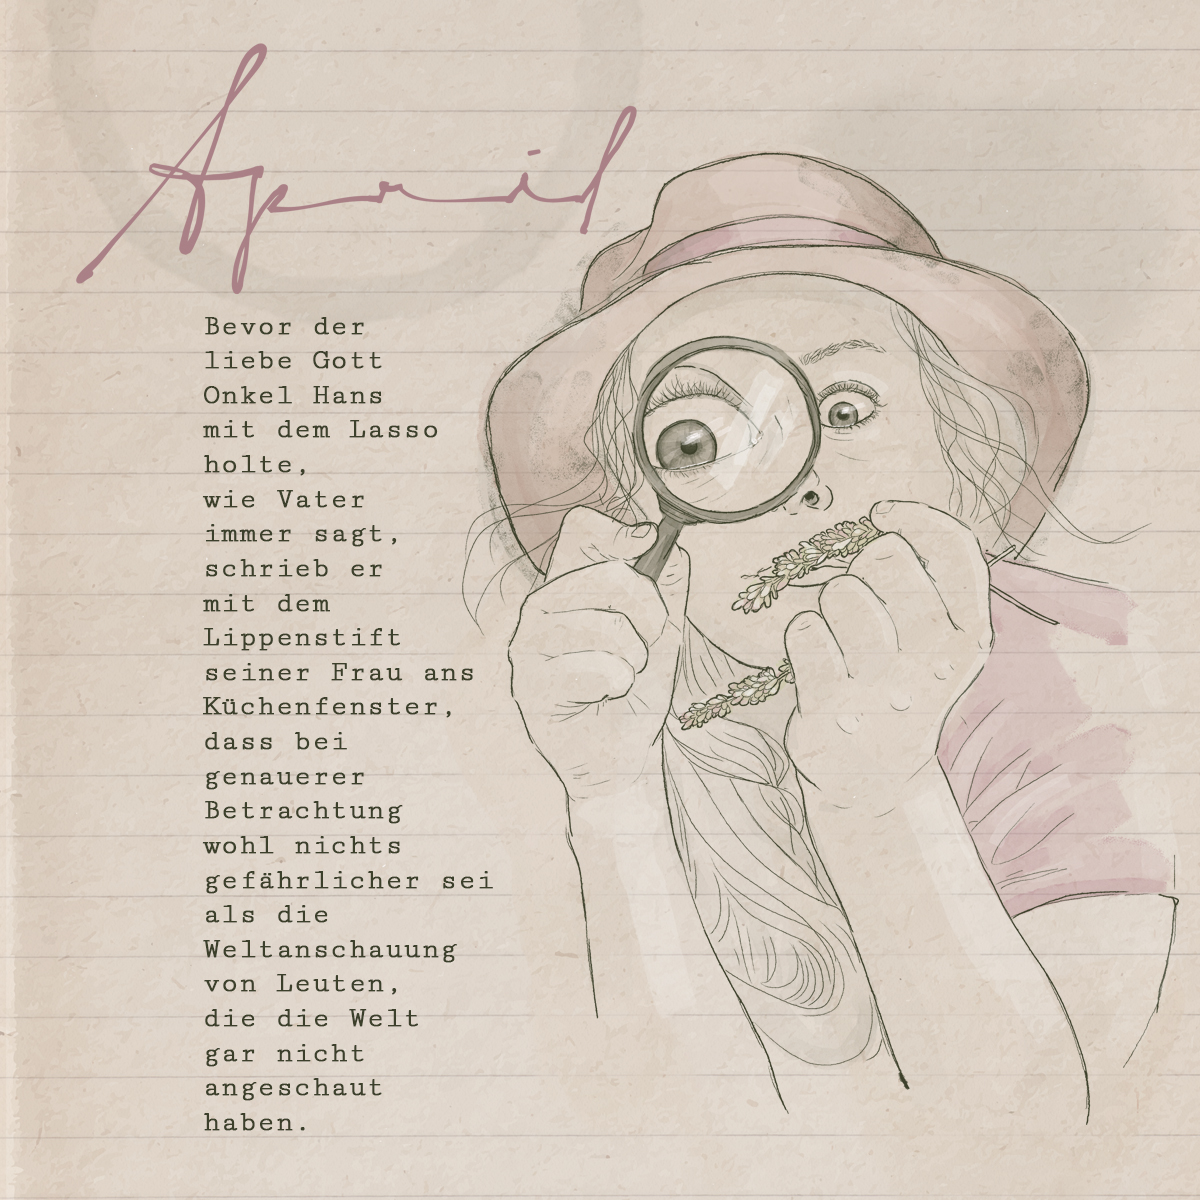 April
Bevor der
liebe Gott
Onkel Hans
mit dem Lasso
holte,
wie Vater
immer sagt,
schrieb er
mit dem
Lippenstift
seiner Frau ans
Küchenfenster,
dass bei
genauerer
Betrachtung
wohl nichts
gefährlicher sei
als die
Weltanschauung
von Leuten,
die die Welt
gar nicht
angeschaut
haben.